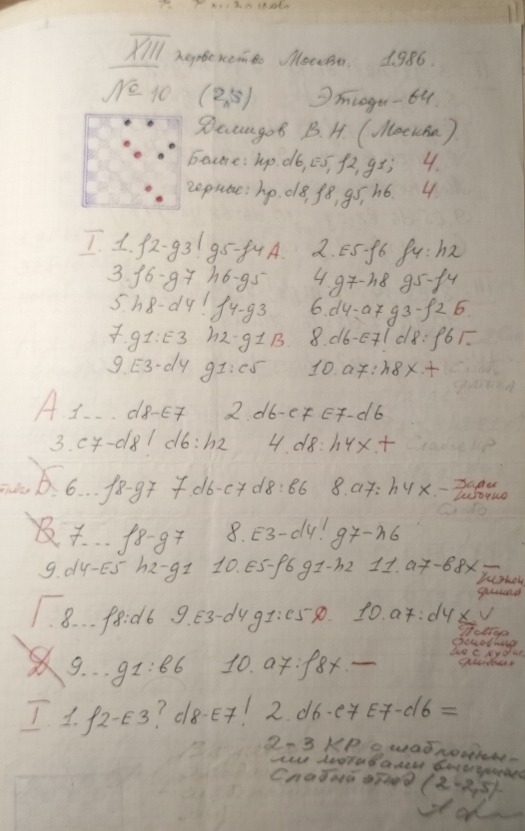 XIII первенство Москвы. 1986.
№ 10 (2,5) Этюды-64.
Демидов В. Н. (Москва).
Белые: пр. d6, E5, f2, g1; 4.
чёрные: пр. d8, f8, g5, h6. 4.
I 1. f2-g3! g5-f4 А. 2. E5-f6 f4:h2
3. f6-g7 h6-g5 4. g7-h8 g5-f4
5. h8-d4! f4-g3 6. d4-a7 g3-f2 Б.
7. g1:E3 h2-g1 В. 8. d6-E7! d8:f6 Г.
9. E3-d4 g1:c5 10. a7:h8x. +
А 1.... d8-E7 2. d6-c7 E7-d6
3. c7-d8! d6:h2 4. d8:h4x. +
Б. 6... f8-g7 7. d6-c7 d8:b6 8. a7:h4x. -
В 7... f8-g7 8. E3-d4! g7-h6
9. d4-E5 h2-g1 10. E5-f6 g1-h2 11. a7-b8x -
финал
Г. 8... f8:d6 9. E3-d4 g1:c5 Д. 10. a7:d4x. V
Д 9... g1:b6 10. a7:f8x. -
I 1. f2-E3? d8-E7! 2. d6-c7 E7-d6 =
2-3 КР с шаблонны-
ми мотивами выигрыша
Слабый этюд (2-2,5)